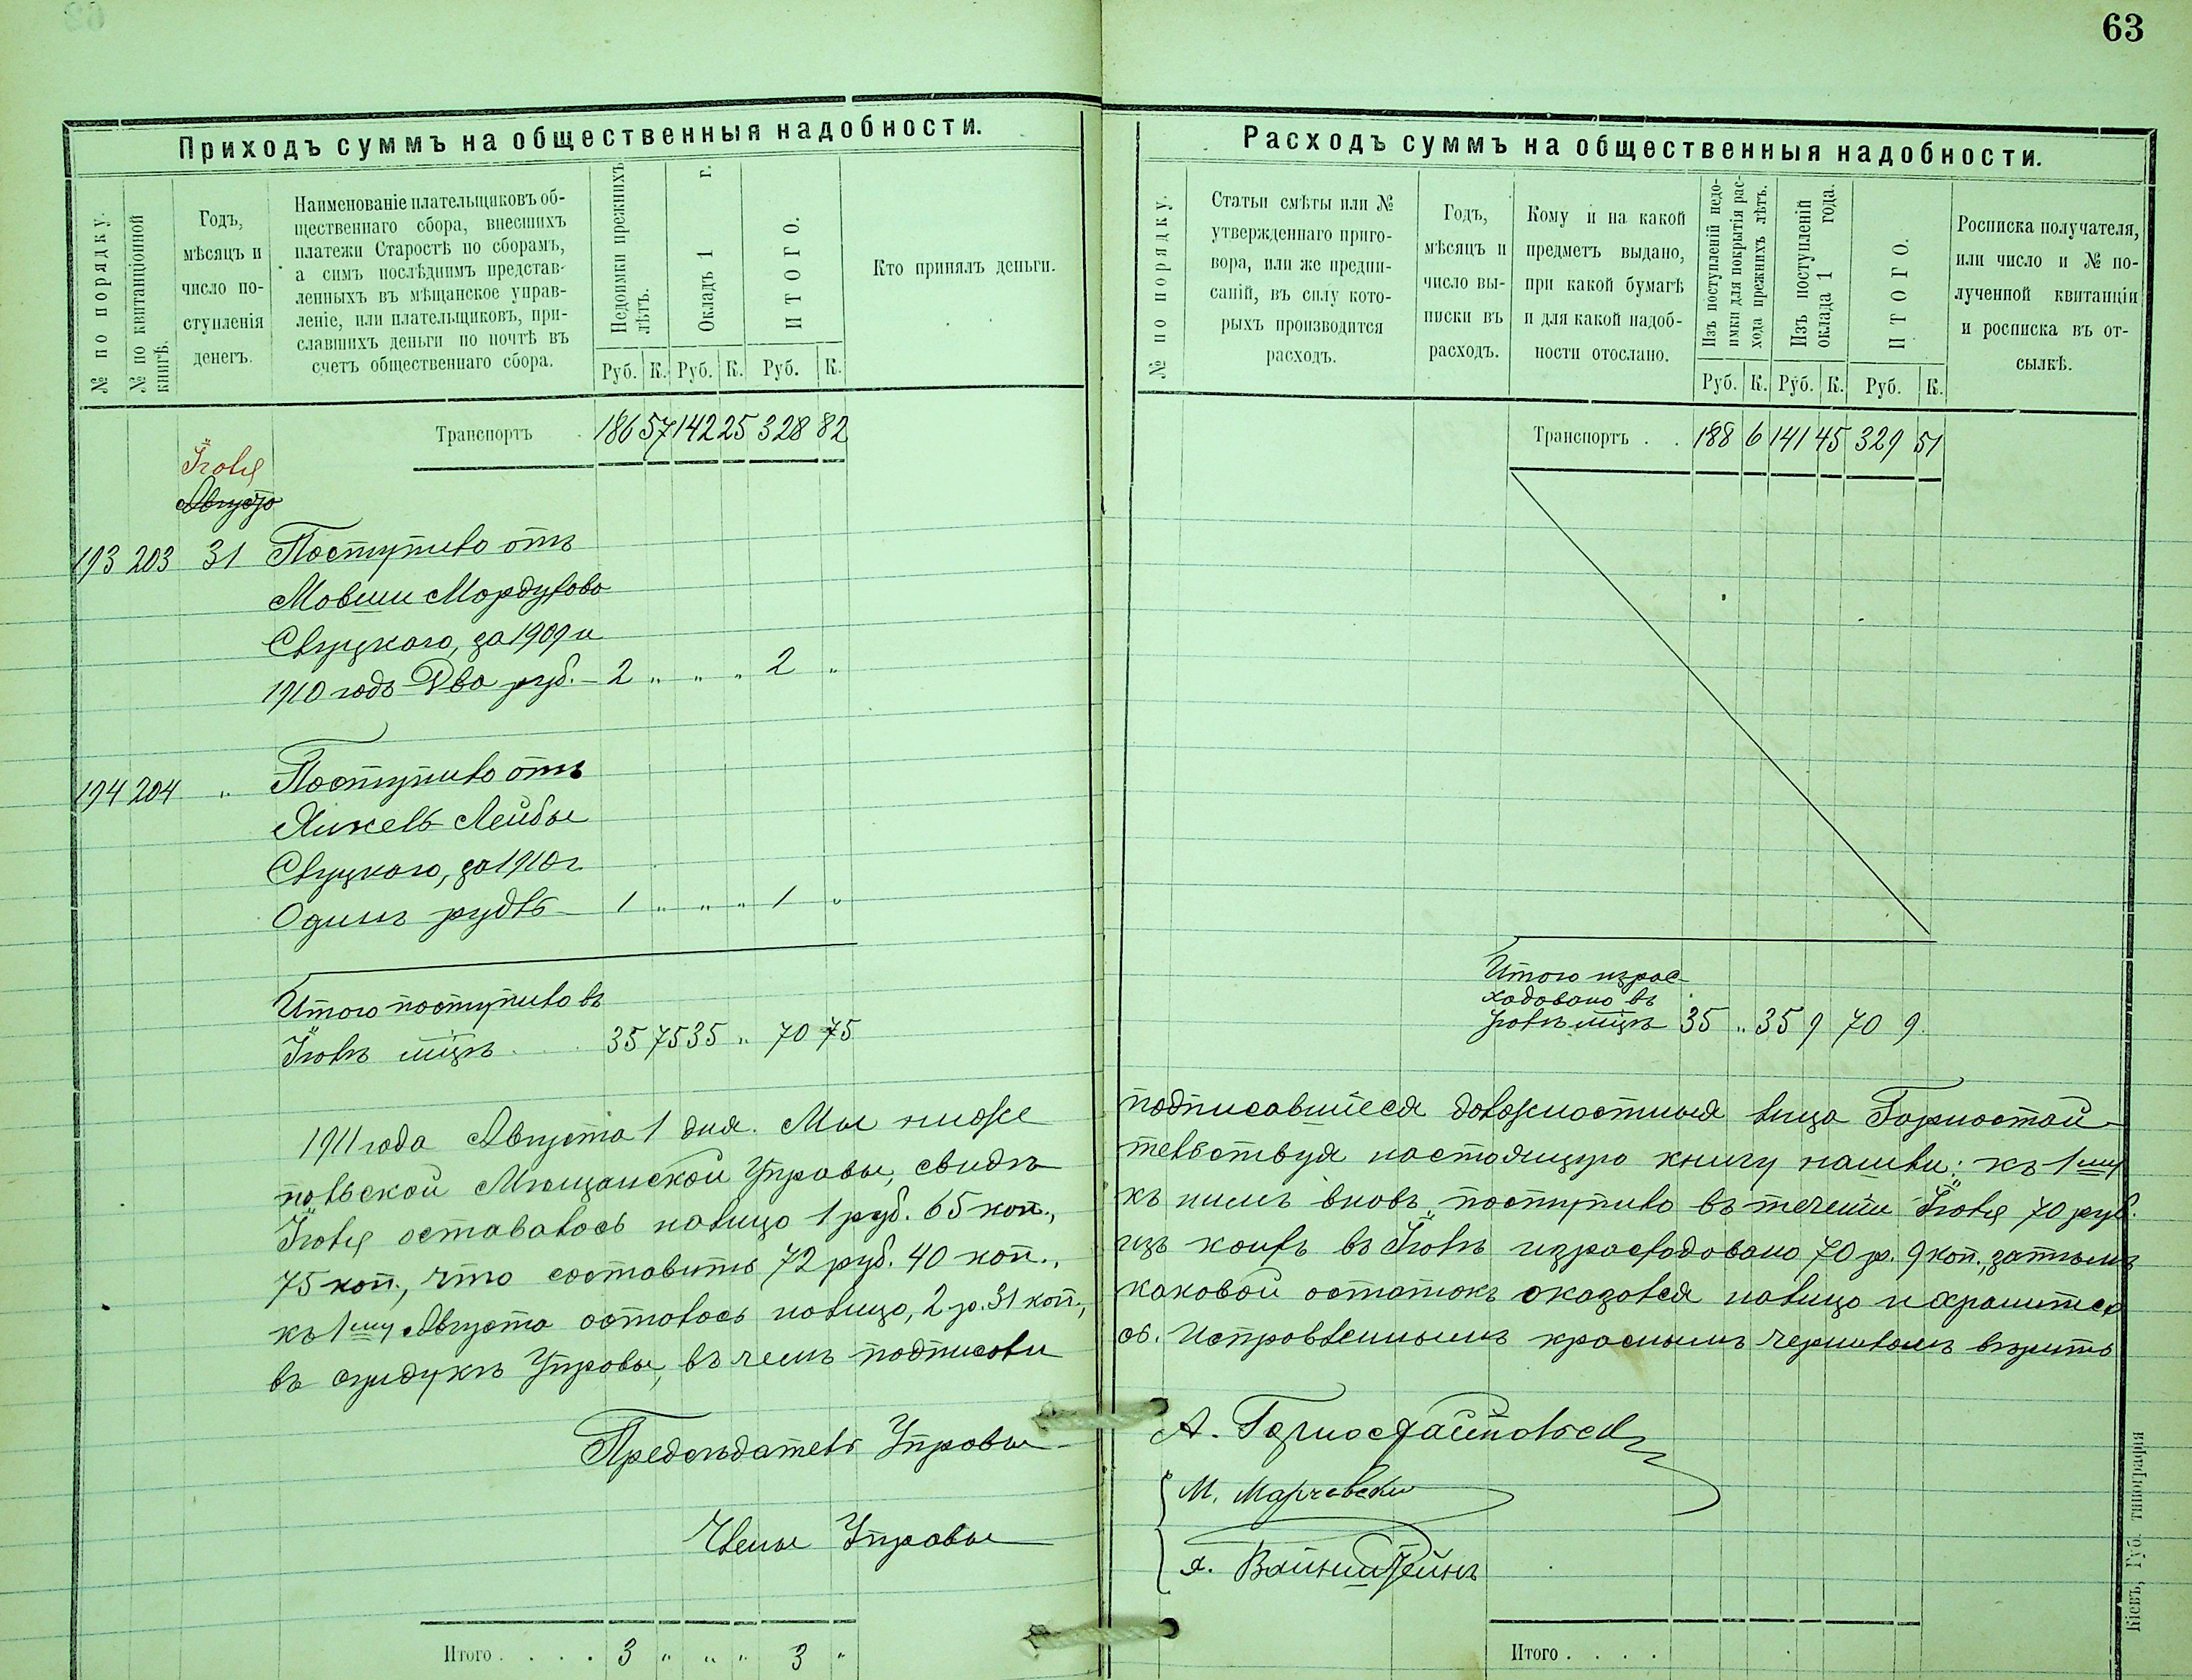 63
Приходъ суммъ на общественныя надобности.
№ по порядку.
№ по квитанціонной
книгѣ.
Годъ,
мѣсяцъ и
число по-
ступленія
денегъ.
Наименованіе плательщиковъ об-
щественнаго сбора, внесшихъ
платежи Старостѣ по сборамъ,
а симъ послѣднимъ представ-
ленныхъ въ мѣщанское управ-
леніе, или плательщиковъ, при-
славшихъ деньги по почтѣ въ
счетъ общественнаго сбора.
Недоимки прежнихъ
лѣтъ.
Окладъ 1 г.
ИТОГО.
Кто принялъ деньги.
Руб. К. Руб. К. Руб. К.
Транспортъ 186 57 142 25 328 82
Іюля
Августа
193 203 31 Поступило отъ
Мовши Мордухова
Слуцкого, за 1909 и
1910 годъ Два руб. 2 " " " 2 "
194 204 " Поступило отъ
Янкель Лейбы
Слуцкого, за 1910 г
Одинъ рубль 1 " " " 1 "
Итого поступило въ
Іюлѣ мѣцѣ 35 75 35 " 70 75
Расходъ суммъ на общественныя надобности.
№ по порядку.
Статьи смѣты или №
утвержденнаго приго-
вора, или же предпи-
саній, въ силу кото-
рыхъ производится
расходъ.
Годъ,
мѣсяцъ и
число вы-
писки въ
расходъ.
Кому и на какой
предметъ выдано,
при какой бумагѣ
и для какой надоб-
ности отослано.
Изъ поступленій недо-
имки для покрытія рас-
хода прежнихъ лѣтъ.
Изъ поступленій
оклада 1 года.
ИТОГО.
Росписка получателя,
или число и № по-
лученной квитанціи
и росписка въ от-
сылкѣ.
Руб. К. Руб. К. Руб. К.
Транспортъ . . 188 6 141 45 329 51
Итого израс-
ходовано въ
Іюлѣ мѣцѣ 35 " 35 9 70 9
1911 года Августа 1 дня. Мы ниже подписавшіеся должностныя лица Горностай-
польской Мѣщанской Управы, свидѣ тельствуя настоящую книгу нашли: къ 1му
Іюля оставалось налицо 1 руб. 65 коп., къ нимъ вновь поступило въ теченіи Іюля 70 руб.
75 коп., что составитъ 72 руб. 40 коп., изъ коихъ въ Іюлѣ израсходовано 70 р. 9 коп., затѣмъ
къ 1му Августа осталось налицо, 2 р. 31 коп., каковой остатокъ оказался налицо и хранится
въ сундукѣ Управы, въ чемъ подписали сь. Исправленнымъ краснымъ чернилом вѣрить
Предсѣдатель Управы А. Горностайпольск
Члены Управы
М. Марчевски
Я. Вайнштейнъ
Итого . . . . 3 " " " 3 "
Итого . . . .
Кіевъ, Губ. типографія